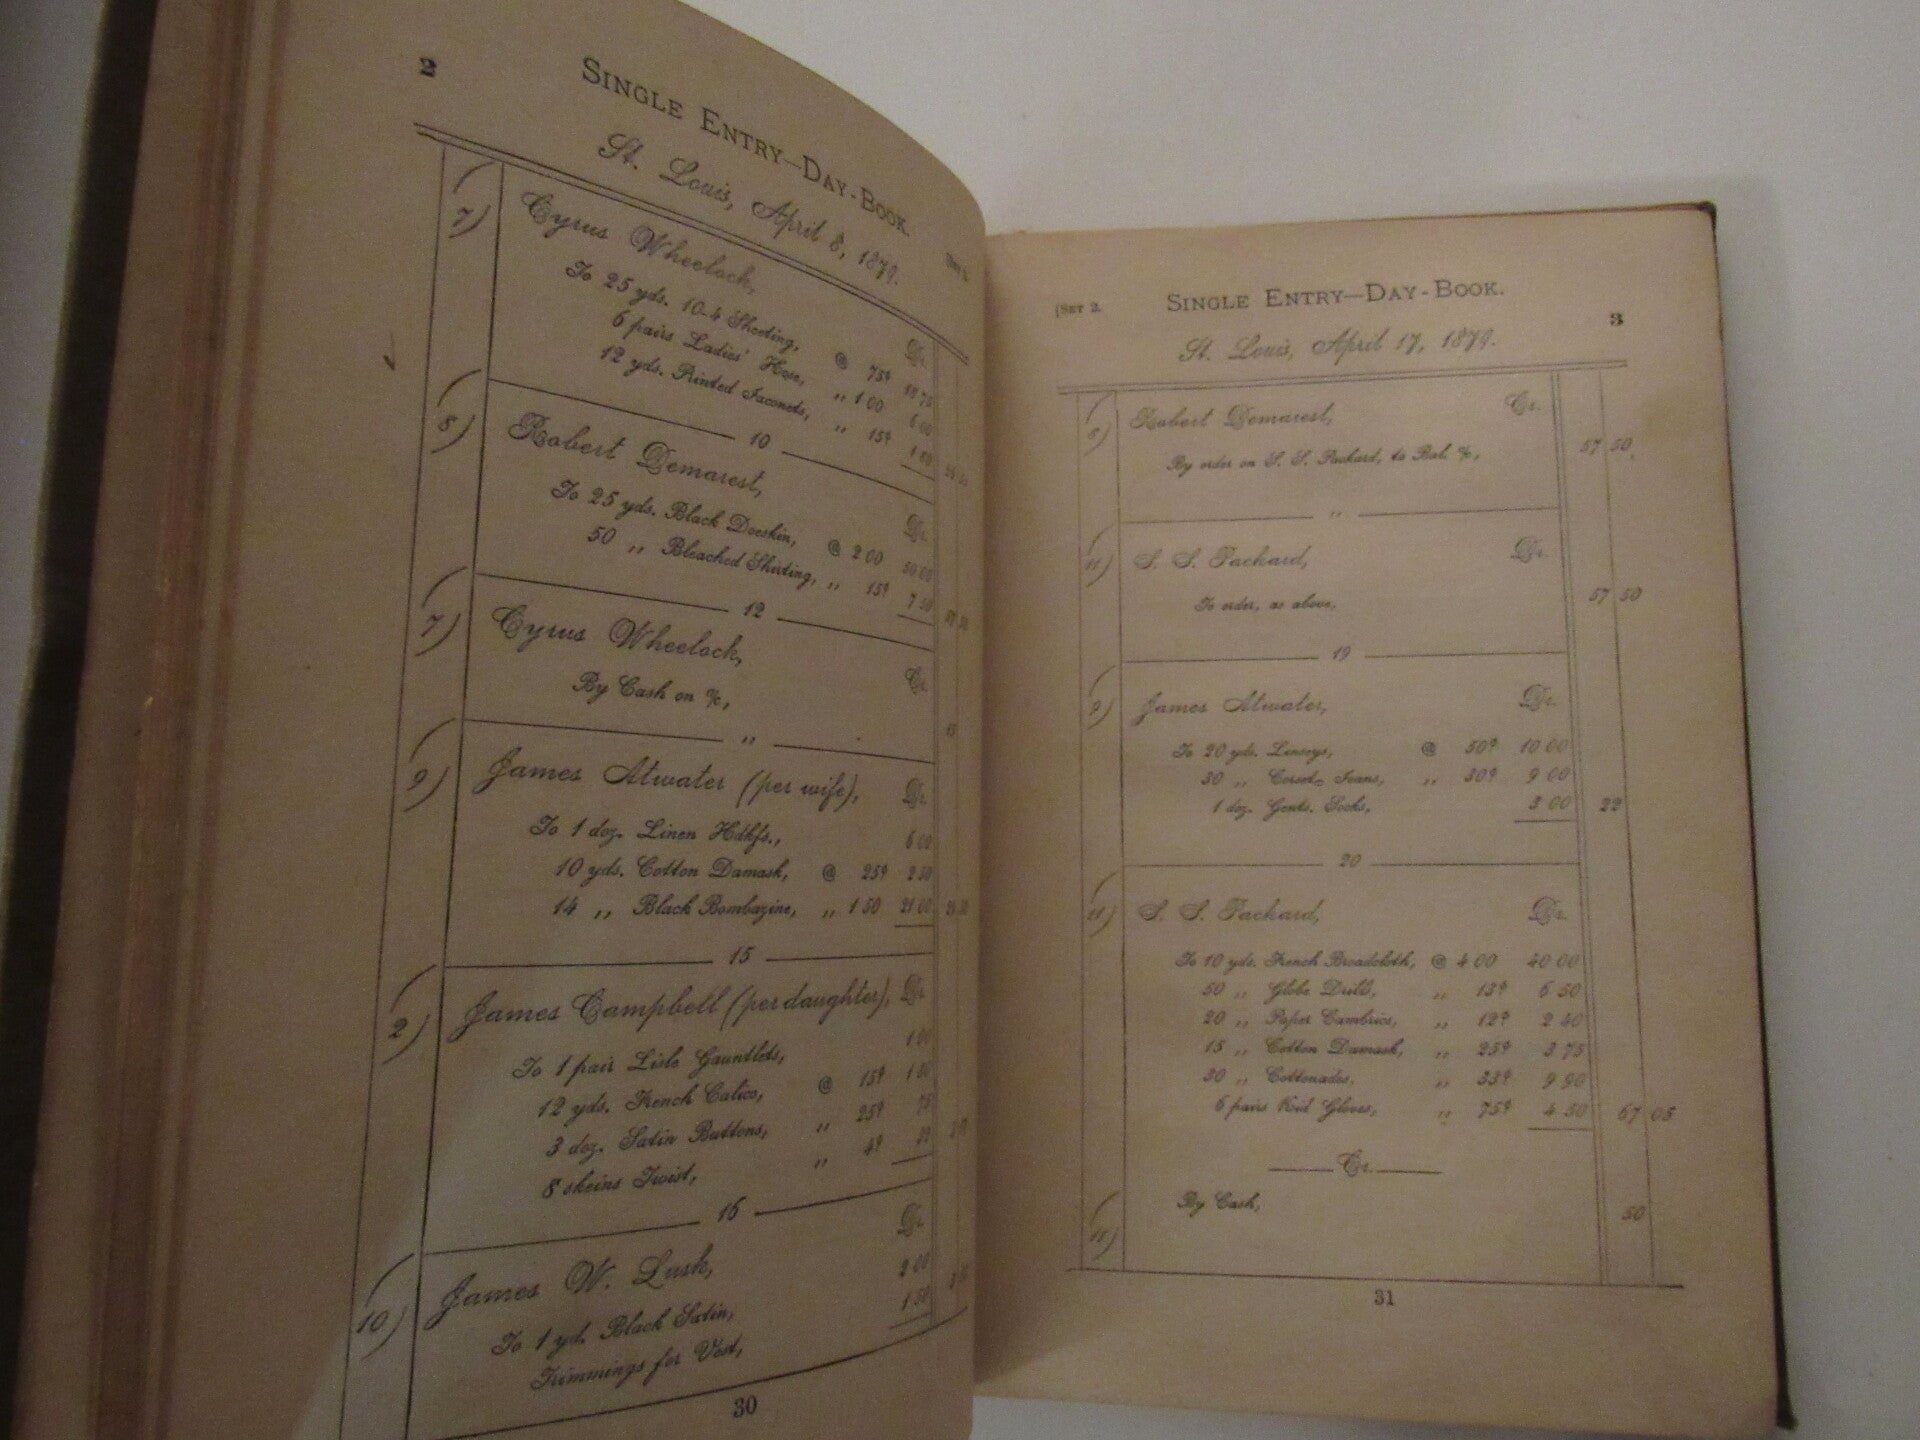 2
SINGLE ENTRY—DAY-BOOK.
St. Louis, April 8, 1879.
7) Cyrus Wheelock, Dr.
To 25 yds. 10-4 Sheeting, @ 75¢ 18 75
6 pairs Ladies' Hose, " 1 00 6 00
12 yds. Printed Jaconets, " 15¢ 1 80
10
8) Robert Demarest, Dr.
To 25 yds. Black Doeskin, @ 2 00 50 00
50 " Bleached Shirting, " 15¢ 7 50
12
7) Cyrus Wheelock, Cr.
By Cash on %,
"
9) James Atwater (per wife), Dr.
To 1 doz. Linen Hdkfs., 6 00
10 yds. Cotton Damask, @ 25¢ 2 50
14 " Black Bombazine, " 1 50 21 00
15
2) James Campbell (per daughter), Dr.
To 1 pair Lisle Gauntlets, 1 00
12 yds. French Calico, @ 15¢ 1 80
3 doz. Satin Buttons, " 25¢ 75
8 skeins Twist, " 4¢
16
10) James W. Lusk, Dr.
To 1 yd. Black Satin, 2 00
Trimmings for Vest, 1 50
30
(SET 2. SINGLE ENTRY—DAY-BOOK. 3
St. Louis, April 17, 1879.
8) Robert Demarest, Cr.
By order on S. S. Packard, to Bal. %, 57 50
"
11) S. S. Packard, Dr.
To order, as above, 57 50
19
9) James Atwater, Dr.
To 20 yds. Linseys, @ 50¢ 10 00
30 " Corset Jeans, " 30¢ 9 00
1 doz. Gents. Socks, 3 00 22
20
11) S. S. Packard, Dr.
To 10 yds. French Broadcloth, @ 4 00 40 00
50 " Globe Drills, " 13¢ 6 50
20 " Paper Cambrics, " 12¢ 2 40
15 " Cotton Damask, " 25¢ 3 75
30 " Cottonades, " 33¢ 9 90
6 pairs Kid Gloves, " 75¢ 4 50 67 05
Cr.
11) By Cash, 50
31